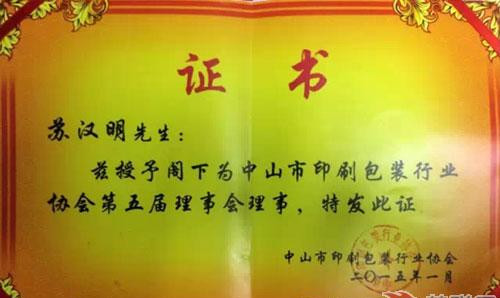 证书
苏汉明先生：
兹授予阁下为中山市印刷包装行业
协会第五届理事会理事，特发此证
中山市印刷包装行业协会
二〇一五年一月